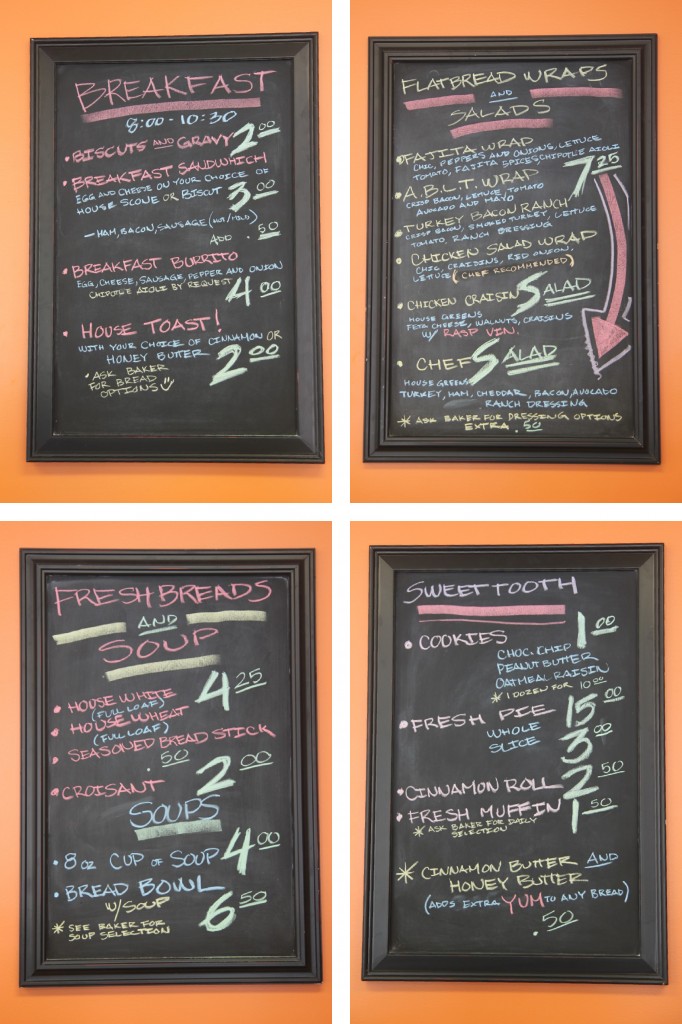 BREAKFAST
8:00 - 10:30
• BISCUTS AND GRAVY 2.00
• BREAKFAST SANDWHICH
EGG AND CHEESE ON YOUR CHOICE OF
HOUSE SCONE OR BISCUT 3.00
- HAM, BACON, SAUSAGE (HOT/MILD)
ADD .50
• BREAKFAST BURRITO
EGG, CHEESE, SAUSAGE, PEPPER AND ONION
CHIPOTLE AIOLI BY REQUEST 4.00
• HOUSE TOAST!
WITH YOUR CHOICE OF CINNAMON OR
HONEY BUTTER 2.00
• ASK BAKER
FOR BREAD
OPTIONS
FLATBREAD WRAPS
AND
SALADS
• FAJITA WRAP
CHIC, PEPPERS AND ONIONS, LETTUCE
TOMATO, FAJITA SPICES, CHIPOTLE AIOLI
• A.B.L.T. WRAP 7.25
CRISP BACON, LETTUCE, TOMATO
AVOCADO AND MAYO
• TURKEY BACON RANCH
CRISP BACON, SMOKED TURKEY, LETTUCE
TOMATO, RANCH DRESSING
• CHICKEN SALAD WRAP
CHIC, CRAISINS, RED ONION,
LETTUCE (CHEF RECOMMENDED)
• CHICKEN CRAISIN SALAD
HOUSE GREENS
FETA CHEESE, WALNUTS, CRAISINS
W/ RASP VIN.
• CHEF SALAD
HOUSE GREENS
TURKEY, HAM, CHEDDAR, BACON, AVOCADO
RANCH DRESSING
* ASK BAKER FOR DRESSING OPTIONS
EXTRA .50
FRESH BREADS
AND
SOUP
• HOUSE WHITE 4.25
(FULL LOAF)
• HOUSE WHEAT
(FULL LOAF)
• SEASONED BREAD STICK
.50
• CROISANT 2.00
SOUPS
• 8 OZ CUP OF SOUP 4.00
• BREAD BOWL
W/SOUP 6.50
* SEE BAKER FOR
SOUP SELECTION
SWEET TOOTH
• COOKIES 1.00
CHOC. CHIP
PEANUT BUTTER
OATMEAL RAISIN
* 1 DOZEN FOR 10.00
• FRESH PIE 15.00
WHOLE
SLICE 3.00
• CINNAMON ROLL 2.50
• FRESH MUFFIN 1.50
* ASK BAKER FOR DAILY
SELECTION
* CINNAMON BUTTER AND
HONEY BUTTER
(ADDS EXTRA YUM TO ANY BREAD)
.50